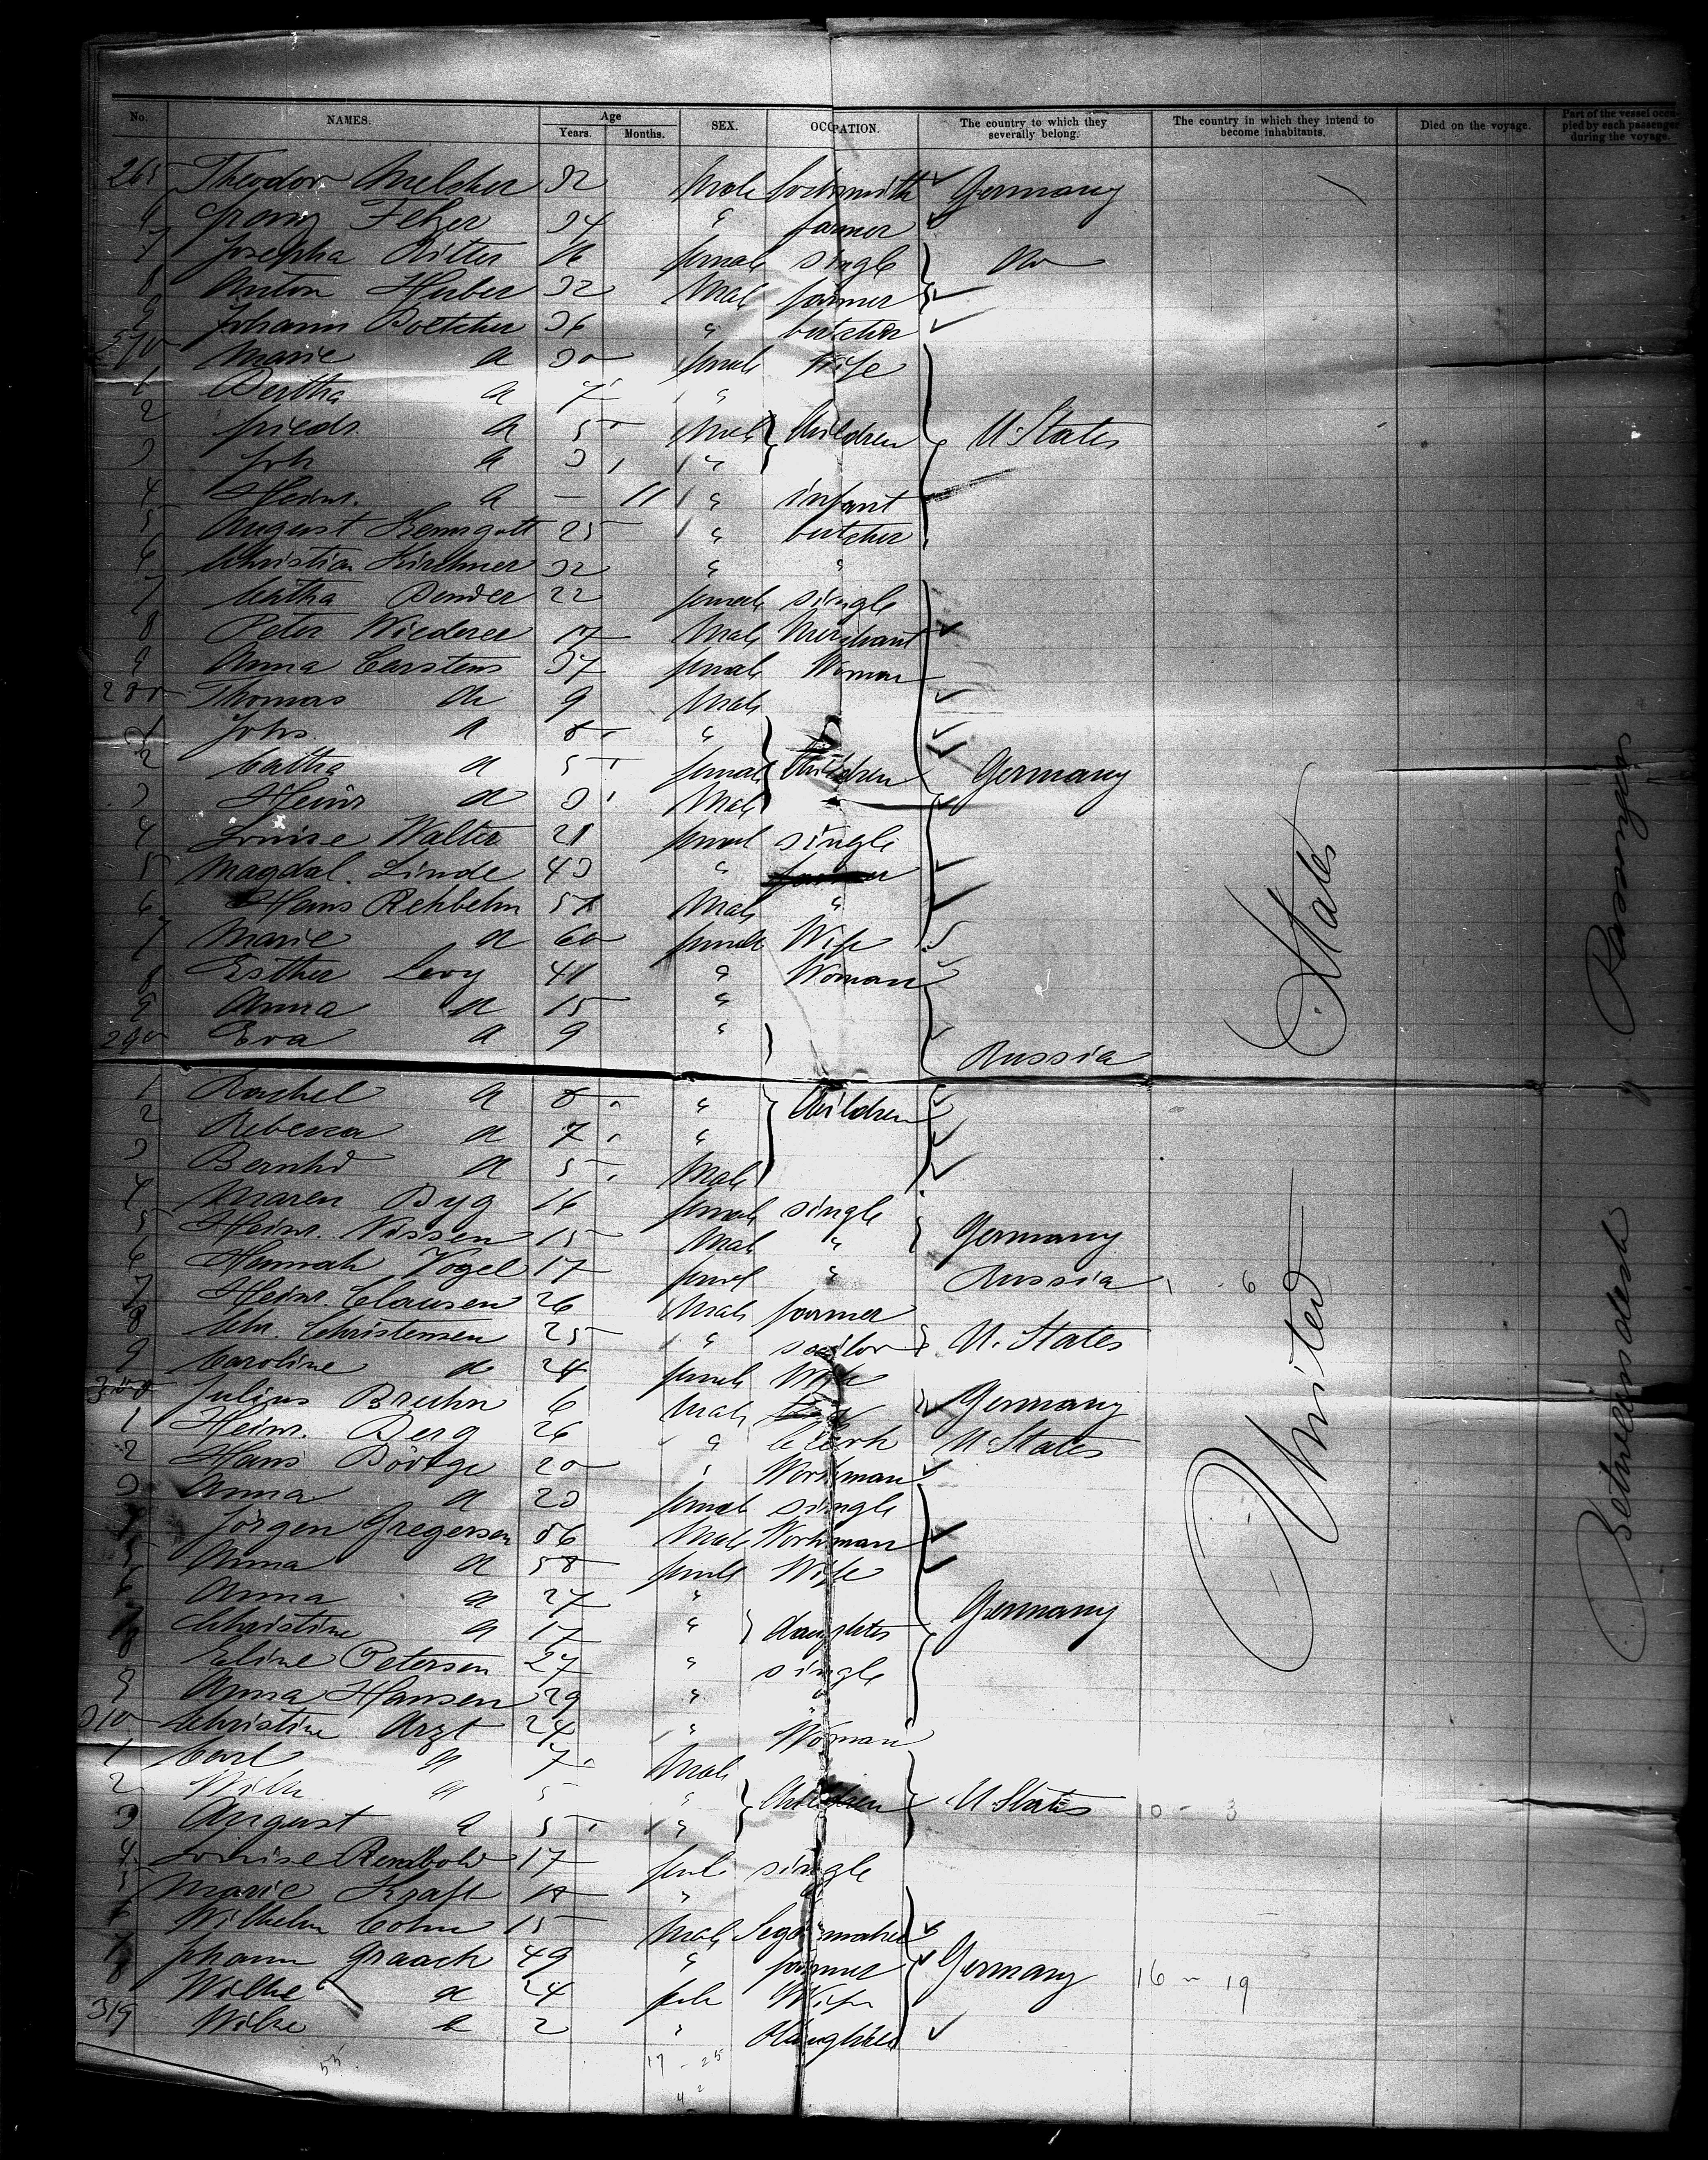 No. NAMES. Age Years. Months. SEX. OCCUPATION. The country to which they severally belong. The country in which they intend to become inhabitants. Died on the voyage. Part of the vessel occupied by each passenger during the voyage.
265 Theodor Melcher 32 Male Locksmith Germany
6 Felzer 34 " farmer
7 Josepha Ritter female single
8 Anton Huber 32 Male farmer
9 Johann Boettcher 36 " butcher
270 Marie d 30 female Wife
1 Bertha d 7 "
2 friedr. d 5 Male Children U. States
3 Joh d 3 "
4 Heinr. d — 11 " infant
5 August 25 " butcher
6 Christian Kirchner 32 " "
7 Binder 22 female single
8 Peter Wiederer 17 Male Merchant
9 Anna Carstens 37 female Woman
280 Thomas do 9 Male
1 Johs. d 8 "
2 Catha d 5 female Children Germany
3 Heinr d 3 Male
4 Louise Walter 21 female single
5 Magdal. Linde 43 "
6 Hans Rehbehn Male "
7 Marie d 60 female Wife
8 Esther Levy 41 " Woman
9 Anna d 15 "
290 Eva d 9 "
Russia
1 Rachel d 8 " Children
2 Rebecca d 7 "
3 Bernhd d 5 Male
4 Maren Dyg 16 female single
5 Heinr. Nissen 15 Male " Germany
6 Hannah Vogel 17 female " Russia 1 6
7 Heinr. Clausen 26 Male farmer
8 Chr. Christensen 25 " sailor U. States
9 Caroline d 24 female Wife
300 Julius Bruhn 6 Male Germany
1 Heinr. Berg 26 " Clerk U States
2 Hans 20 " Workman
3 Anna d 23 female single
4 Jörgen Gregersen 56 Male Workman
5 Anna d 58 female Wife
6 Anna d 27 " Germany
7 Christine d 17 " daughters
8 Eline Petersen 27 " single
9 Anna Hansen 29 " "
310 Christine Arzt 24 " Woman
1 Carl d 7 Male
2 d 5 " Children U States 10 - 3
3 August d 5 "
4 Louise Rembold 17 female single
5 Marie Kraft "
6 Wilhelm Cohn 15 Male Segarmaker
7 Johann Graack 49 " farmer Germany 16 - 19
8 d 24 Wife
319 2 " daughter
55 17 - 25
United States
Betweendeck Passengers